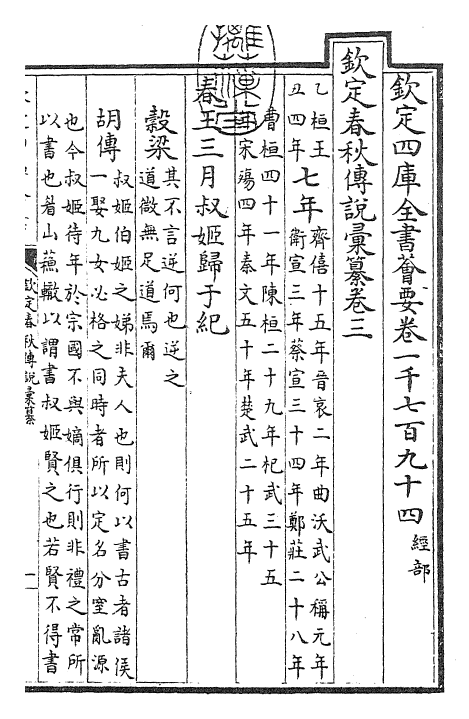 欽定四庫全書薈要卷一千七百九十四 經部
欽定春秋傳說彙纂卷三
乙桓王
丑四年
七年
齊僖十五年晉哀二年曲沃武公稱元年
衛宣三年蔡宣三十四年鄭莊二十八年
曹桓四十一年陳桓二十九年杞武三十五
宋殤四年秦文五十年楚武二十五年
春王三月叔姬歸于紀
穀梁
其不言逆何也逆之
道微無足道焉爾
胡傳
叔姬伯姬之娣非夫人也則何以書古者諸侯
一娶九女必格之同時者所以定名分窒亂源
也今叔姬待年於宗國不與嫡俱行則非禮之常所
以書也眉山蘇轍以謂書叔姬賢之也若賢不得書
欽定春秋傳說彙纂
一